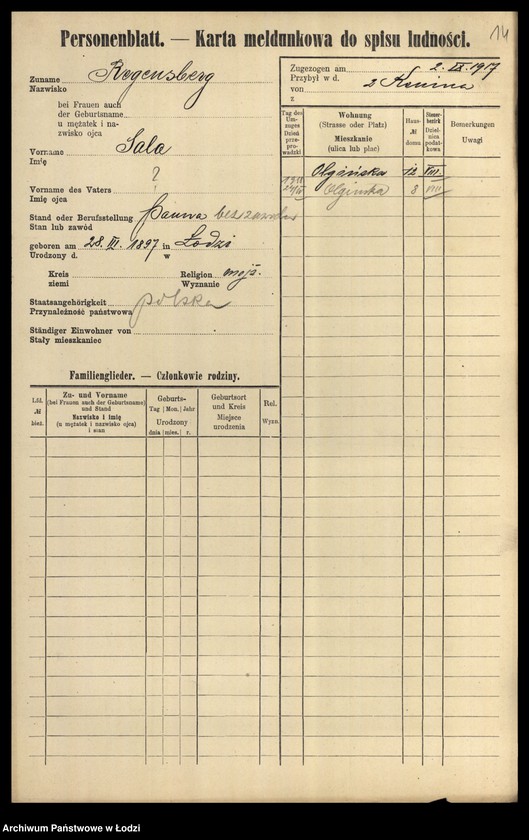 14
Personenblatt. — Karta meldunkowa do spisu ludności.
Zuname Regensberg
Nazwisko
bei Frauen auch
der Geburtsname
u mężatek i na-
zwisko ojca
Vorname Sala
Imię
Vorname des Vaters ?
Imię ojca
Stand oder Berufsstellung panna bez zawodu
Stan lub zawód
geboren am 28. III. 1897 in Łodzi
Urodzony d. w
Kreis
ziemi
Religion mojż.
Wyznanie
Staatsangehörigkeit polska
Przynależność państwowa
Ständiger Einwohner von
Stały mieszkaniec
Zugezogen am 2. IX. 1917
Przybył w d.
von z Konina
z
Tag des Um-zuges Dzień prze-pro-wadzki
Wohnung
(Strasse oder Platz)
Mieszkanie
(ulica lub plac)
Haus-
№
domu
Steuer-bezirk Dziel-nica podat-kowa
Bemerkungen
Uwagi
Olgińska 12 VIII
Olgińska 8 VIII
Familienglieder. — Członkowie rodziny.
Lfd.
№
bież.
Zu- und Vorname
(bei Frauen auch der Geburtsname)
und Stand
Nazwisko i imię
(u mężatek i nazwisko ojca)
i stan
Geburts-
Tag Mon. Jahr
Urodzony
dnia mies. r.
Geburtsort
und Kreis
Miejsce
urodzenia
Rel.
Wyzn.
Archiwum Państwowe w Łodzi